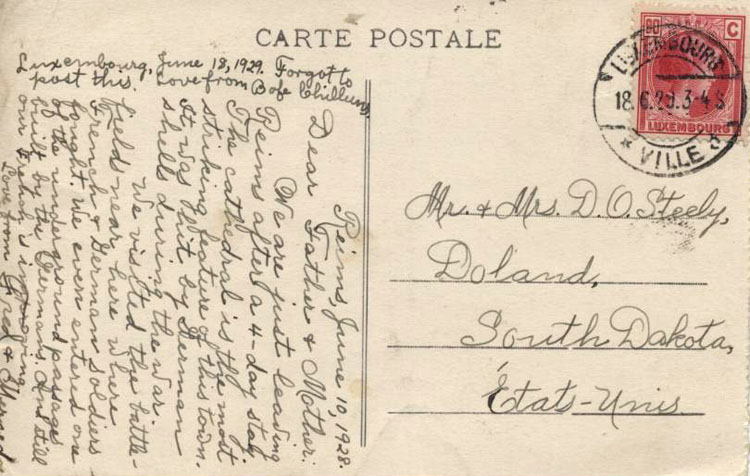 CARTE POSTALE
Luxembourg, June 18, 1929. Forgot to
post this. Love from Bofe Chillums.
Reims, June 10, 1928.
Dear Father & Mother:
We are just leaving
Reims after a 4-day stay.
The cathedral is the most
striking feature of this town.
It was hit by German
shells during the war.
We visited the battle-
fields near here where
French & German soldiers
fought. We even entered one
of the underground passages
built by the Germans. And still
our French is improving.
Love from Fred &
80 C
LUXEMBOURG
LUXEMBOURG
18.6.29.3-4 S
* VILLE
Mr. & Mrs. D. O. Steely,
Doland,
South Dakota,
États-Unis